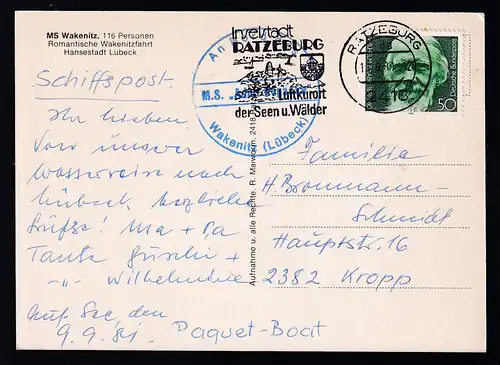 MS Wakenitz, 116 Personen
Romantische Wakenitzfahrt
Hansestadt Lübeck
Schiffspost.
Ihr Lieben
Von unserer
Wasserreise nach
Lübeck herzliche
Grüße! Ma + Pa
Tante
-"- Wilhelmine
Auf See, den
9.9.81 Paquet-Boat
An
M.S.
Wakenitz (Lübeck)
Inselstadt
RATZEBURG
Luftkurort
der Seen u. Wälder
RATZEBURG
2418
50
Deutsche Bundespost
Aufnahme u. alle Rechte: R. Maiworm, 2418
Familie
H. Bronnmann-
Schmidt
Hauptstr. 16
2382 Kropp